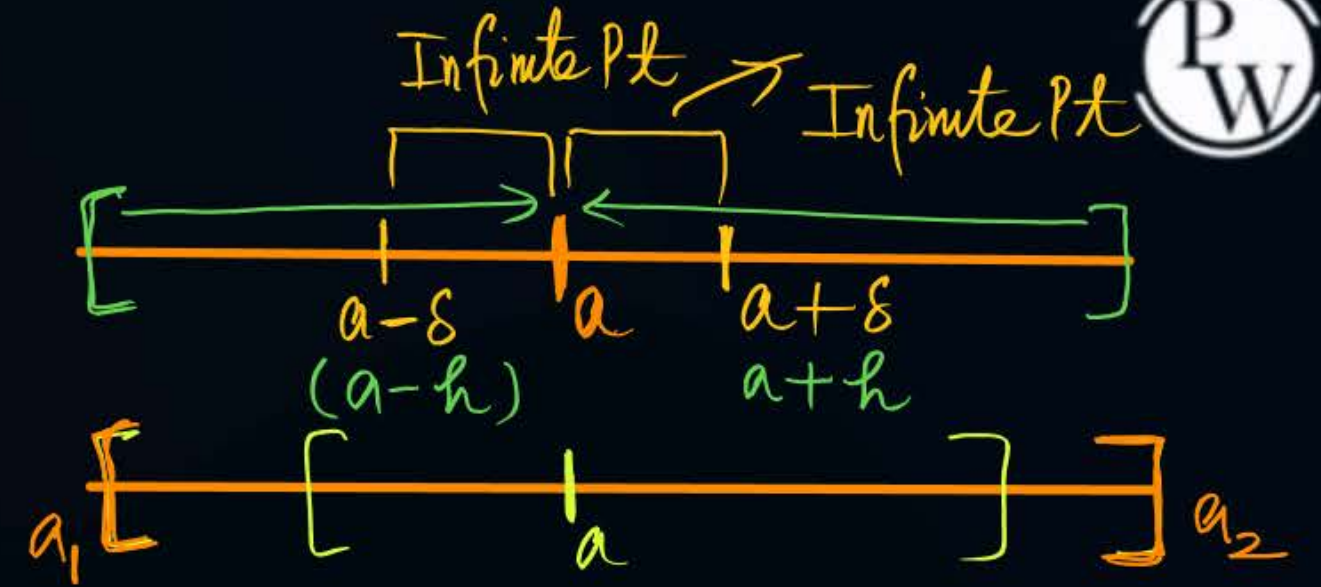 Infinite Pt
Infinite Pt
PW
a-δ a a+δ
(a-h) a+h
a₁ a a₂